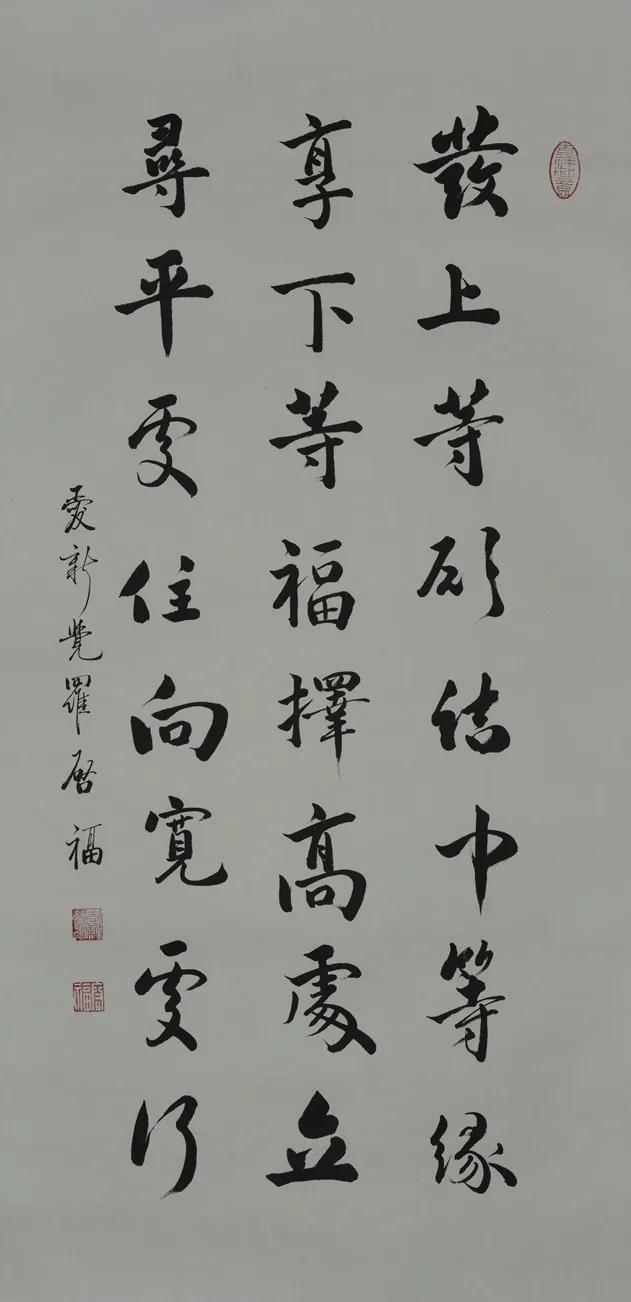 發上等願結中等緣
享下等福擇高處立
尋平處住向寬處行
愛新覺羅啓福